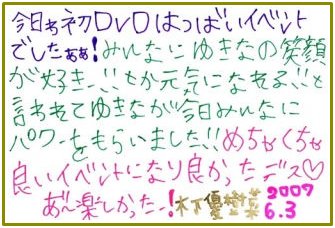 今日ゎ初DVDはっばいイベント
でしたぁぁ!みんなにゆきなの笑顔
が好き!!とか元気になれる!!と
言われてゆきなが今日みんなに
パワーをもらいました!!めちゃくちゃ
良いイベントになり良かったデス♡
あ〜楽しかったー!木下優樹菜 2007
6.3